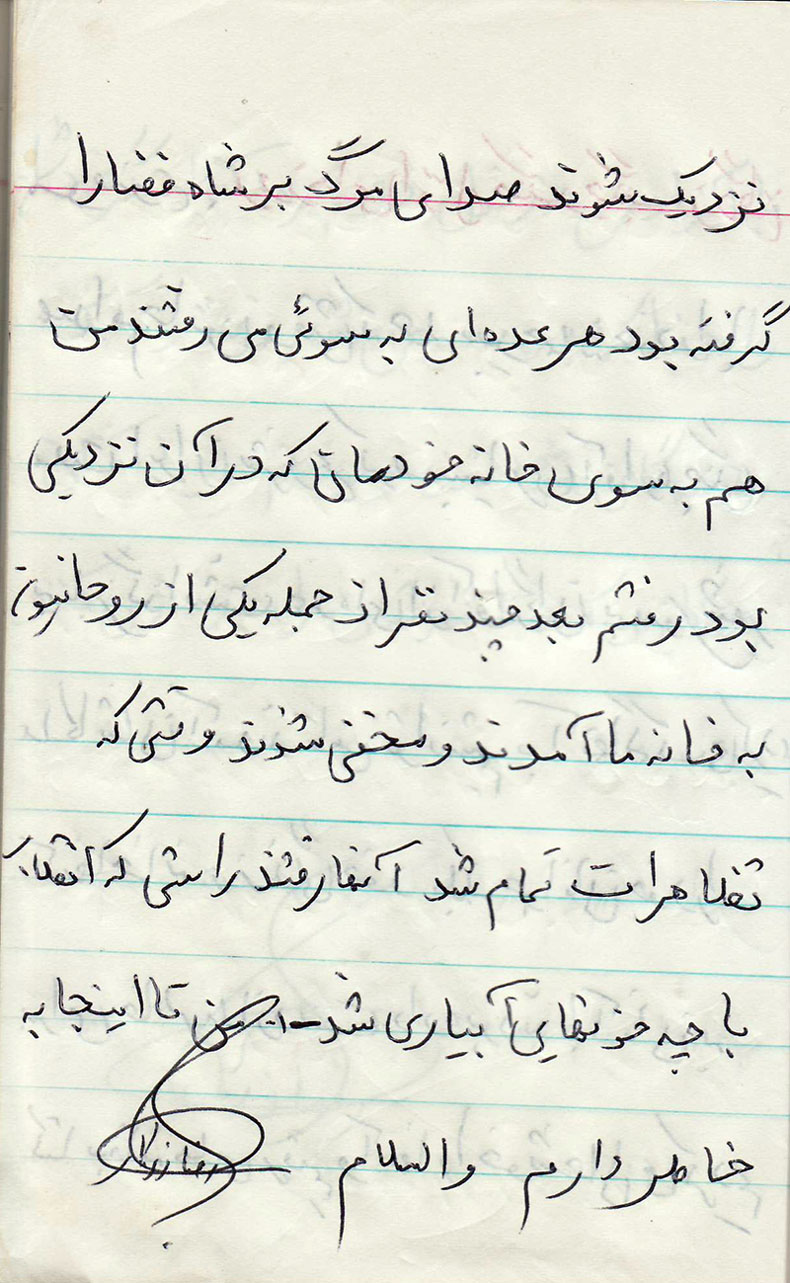 نزدیک شوند صدای مرگ بر شاه فضا را
گرفته بود هر عده‌ای به سوئی می رفتند من
هم به سوی خانه خودمان که در آن نزدیکی
بود رفتم بعد چند نفر از جمله یکی از روحانیون
به خانه ما آمدند و مخفی شدند وقتی که
تظاهرات تمام شد آنها رفتند راستی که انقلاب
با چه خونهایی آبیاری شد - من تا اینجا به
خاطر دارم والسلام